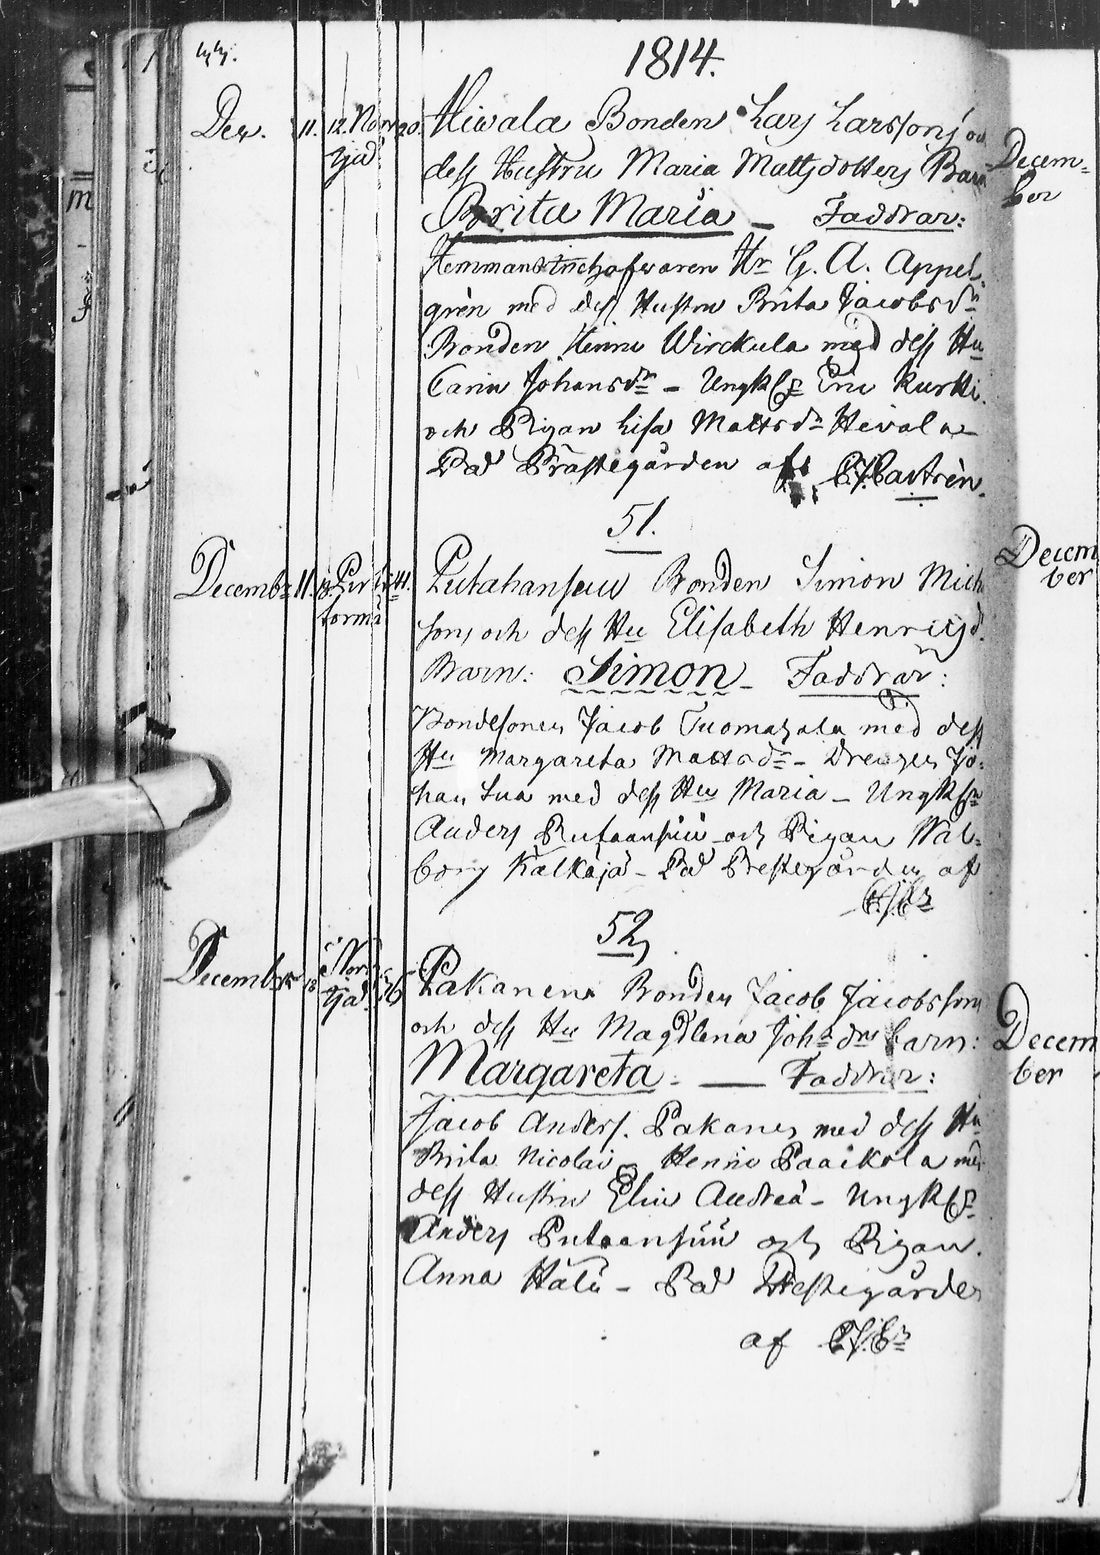 1814.
Dec. 11. 12. Nor 20. Hiwala Bonden Lars Larssons
tjä dess Hustru Maria Mattsdotters Barn
Brita Maria — Faddrar:
Hr G. A. Appel-
grèn med dess Hustru Brita Jacobsdr
Bonden Henric Wirckula med dess Hu
Carin Johansdr – Ungk Eric Kurki
och Pigan Lisa Mattsdr Hivala
På Prästegården af E.J.Castrèn.
51.
Decembr 11. Bonden Simon Mich
sons och dess Hu Elisabeth Henricsd.
Barn: Simon – Faddrar:
Bondesonen Jacob Tuomazala med dess
Hu Margareta Mattsdr – Drengen Jo-
han Lua med dess Hu Maria – Ungk
Anders och Pigan Wal-
borg Kalkaja – På Prestegården af
52,
Decembr 18 Nor 26 Pakanen Bonden Jacob Jacobsson
tjä. och dess Hu Magdlena Johs dr barn:
Margareta. — Faddrar:
Jacob Anders. Pakanen med dess Hu
Brita Nicolai – Henric Paaikola med
dess Hustru Elin Andreä – Ungk
Anders Putaansuu och Pigan
Anna Hälü – På Prestegården
af
Decem-
ber
Decem
ber
Decem
ber